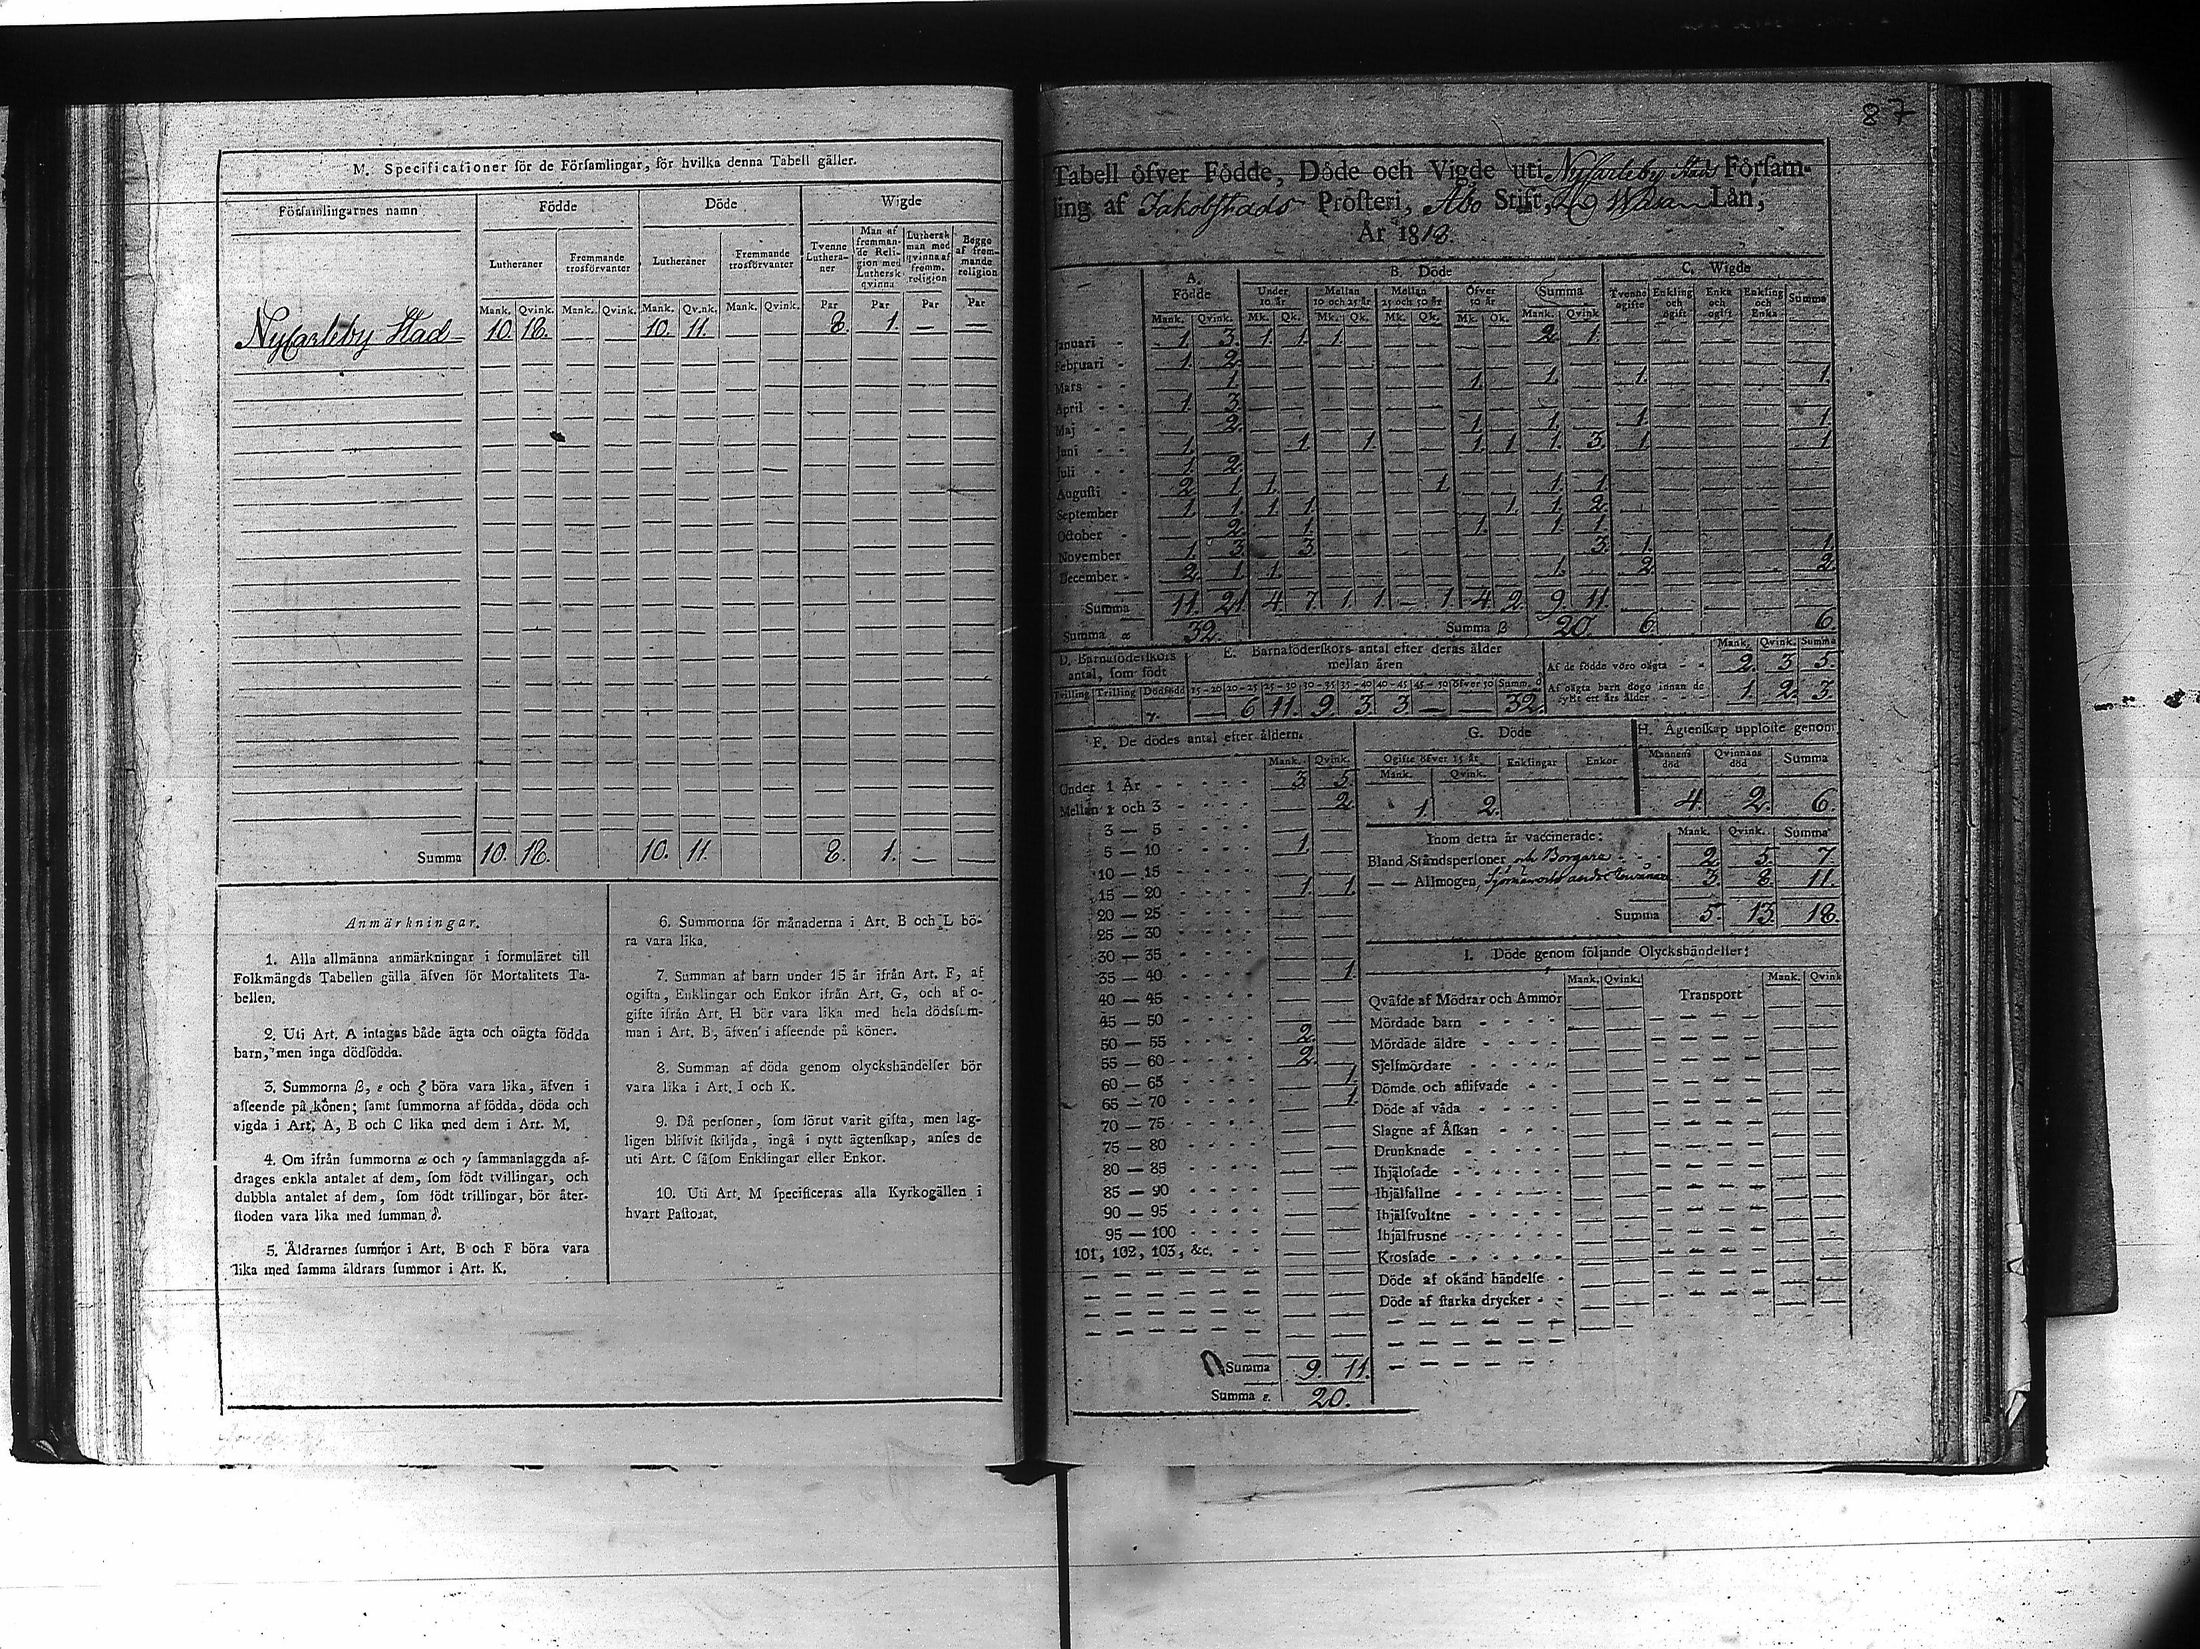 87
M. Specificationer för de Församlingar, för hvilka denna Tabell gäller.
Församlingarnes namn | Födde | Döde | Wigde
Lutheraner | Fremmande trosförvanter | Lutheraner | Fremmande trosförvanter | Tvenne Lutheraner | Man af fremmande Religion med Luthersk qvinna | Luthersk man med qvinna af fremm. religion | Begge af fremmande religion
Mank. Qvink. Mank. Qvink. Mank. Qvink. Mank. Qvink. Par Par Par Par
NyCarleby Stad 10. 18. — — 10. 11. — — 8. 1. — —
Summa 10. 18. 10. 11. 8. 1. — —
Anmärkningar.
1. Alla allmänna anmärkningar i formuläret till
Folkmängds Tabellen gälla äfven för Mortalitets Ta-
bellen.
2. Uti Art. A intagas både ägta och oägta födda
barn, men inga dödfödda.
3. Summorna β, ε och ζ böra vara lika, äfven i
afseende på könen; samt summorna af födda, döda och
vigda i Art. A, B och C lika med dem i Art. M.
4. Om ifrån summorna α och γ sammanlaggda af-
drages enkla antalet af dem, som födt tvillingar, och
dubbla antalet af dem, som födt trillingar, bör åter-
stoden vara lika med summan δ.
5. Åldrarnes summor i Art. B och F böra vara
lika med samma åldrars summor i Art. K.
6. Summorna för månaderna i Art. B och L bö-
ra vara lika.
7. Summan af barn under 15 år ifrån Art. F, af
ogifta, Enklingar och Enkor ifrån Art. G, och af o-
gifte ifrån Art. H bör vara lika med hela dödssum-
man i Art. B, äfven i afseende på köner.
8. Summan af döda genom olyckshändelser bör
vara lika i Art. I och K.
9. Då personer, som förut varit gifta, men lag-
ligen blifvit skiljda, ingå i nytt ägtenskap, anses de
uti Art. C såsom Enklingar eller Enkor.
10. Uti Art. M specificeras alla Kyrkogällen i
hvart Pastorat.
Tabell öfver Födde, Döde och Vigde uti NyCarleby Stads Församling
ling af Jakobstads Prosteri, Åbo Stift, Wasa Län,
År 1818.
A. Födde | B. Döde | C. Wigde
Under 10 år | Mellan 10 och 25 år | Mellan 25 och 50 år | Öfver 50 år | Summa | Tvenne ogifte | Enkling och ogift | Enka och ogift | Enkling och Enka | Summa
Mank. Qvink. Mk. Qk. Mk. Qk. Mk. Qk. Mk. Qk. Mank. Qvink.
Januari 1. 3. 1. 1. 1. 2. 1.
Februari 1. 2.
Mars 1. 1. 1. 1. 1.
April 1. 3.
Maj 2. 1. 1. 1. 1.
Juni 1. 1. 1. 1. 1. 1. 3. 1. 1.
Juli 1. 2.
Augusti 2. 1. 1. 1. 1. 1.
September 1. 1. 1. 1. 1. 1. 2.
October 2. 1. 1. 1. 1.
November 1. 3. 3. 3. 1. 1.
December 2. 1. 1. 1. 2. 2.
Summa 11. 21. 4. 7. 1. 1. — 1. 4. 2. 9. 11.
Summa α 32. Summa β 20. 6. 6.
D. Barnaföderskors antal, som födt
Tvilling Trilling Dödfödd
γ.
E. Barnaföderskors antal efter deras ålder mellan åren
15—20 20—25 25—30 30—35 35—40 40—45 45—50 öfver 50 Summ. δ
— 6. 11. 9. 3. 3. — — 32.
Mank. Qvink. Summa
Af de födde voro oägta 2. 3. 5.
Af oägta barn dogo innan de fyllt ett års ålder 1. 2. 3.
F. De dödes antal efter åldern.
Mank. Qvink.
Under 1 År 3. 5.
Mellan 1 och 3 2.
3 — 5
5 — 10 1.
10 — 15
15 — 20 1. 1.
20 — 25
25 — 30
30 — 35
35 — 40 1.
40 — 45
45 — 50
50 — 55 2.
55 — 60 2.
60 — 65 1.
65 — 70 1.
70 — 75
75 — 80
80 — 85
85 — 90
90 — 95
95 — 100
101, 102, 103, &c.
Summa 9. 11.
Summa ε. 20.
G. Döde
Ogifte öfver 15 år | Enklingar | Enkor
Mank. Qvink.
1. 2.
H. Ägtenskap upplöste genom
Mannens död | Qvinnans död | Summa
4. 2. 6.
Inom detta år vaccinerade: Mank. Qvink. Summa
Bland Ståndspersoner och Borgare 2. 5. 7.
— — Allmogen, Sjömän och andre 3. 8. 11.
Summa 5. 13. 18.
I. Döde genom följande Olyckshändelser:
Mank. Qvink. Mank. Qvink
Qväfde af Mödrar och Ammor Transport
Mördade barn
Mördade äldre
Sjelfmördare
Dömde och aflifvade
Döde af våda
Slagne af Åskan
Drunknade
Ihjälosade
Ihjälfallne
Ihjälsvultne
Ihjälfrusne
Krossade
Döde af okänd händelse
Döde af starka drycker